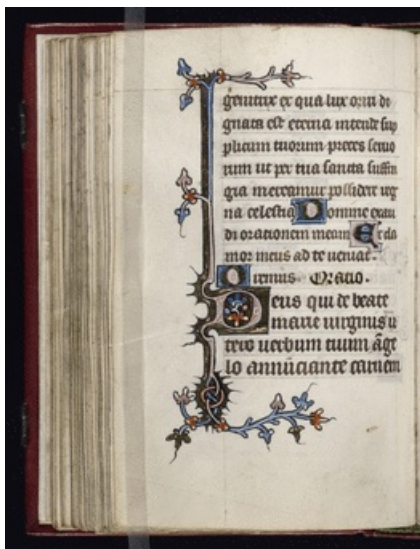 genitrix ex qua lux oriri di
gnata est eterna intende sup
plicum tuorum preces seruo
rum ut per tua sancta suffra
gia mereamur possidere reg
na celestia Domine exau
di orationem meam Et cla
mor meus ad te ueniat.
Oremus Oratio.
Deus qui de beate
marie uirginis u
tero uerbum tuum āge
lo annūciante carnem